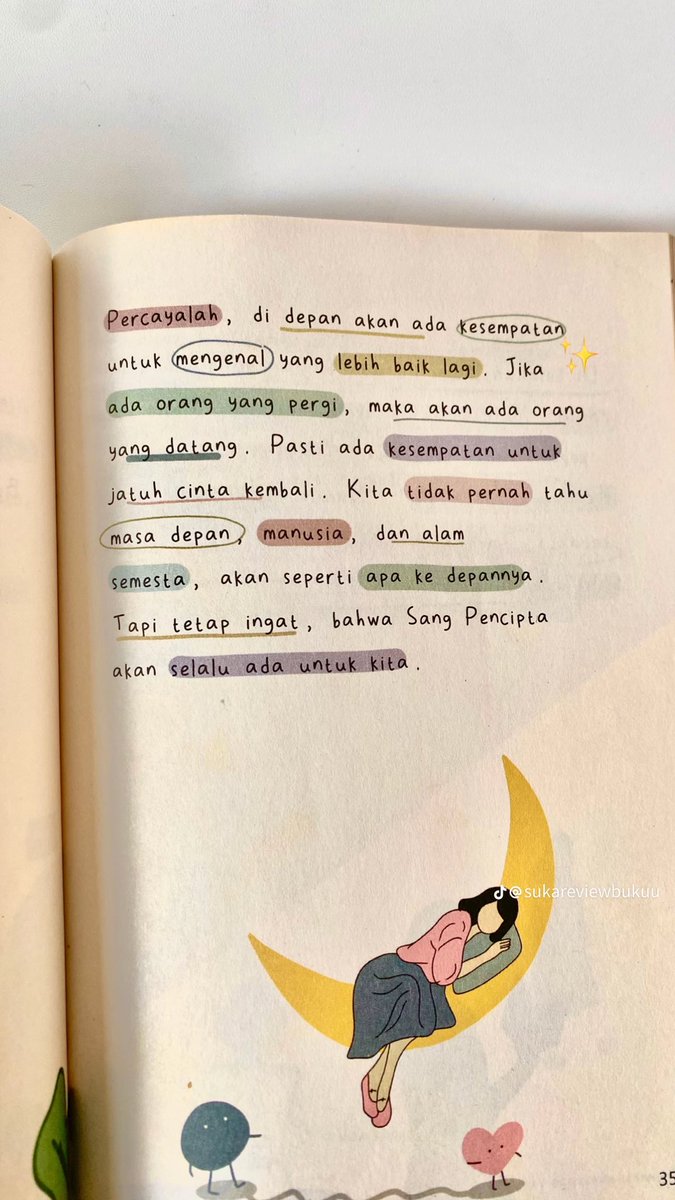 Percayalah, di depan akan ada kesempatan
untuk mengenal yang lebih baik lagi. Jika
ada orang yang pergi, maka akan ada orang
yang datang. Pasti ada kesempatan untuk
jatuh cinta kembali. Kita tidak pernah tahu
masa depan, manusia, dan alam
semesta, akan seperti apa ke depannya.
Tapi tetap ingat, bahwa Sang Pencipta
akan selalu ada untuk kita.
@sukareviewbukuu
35